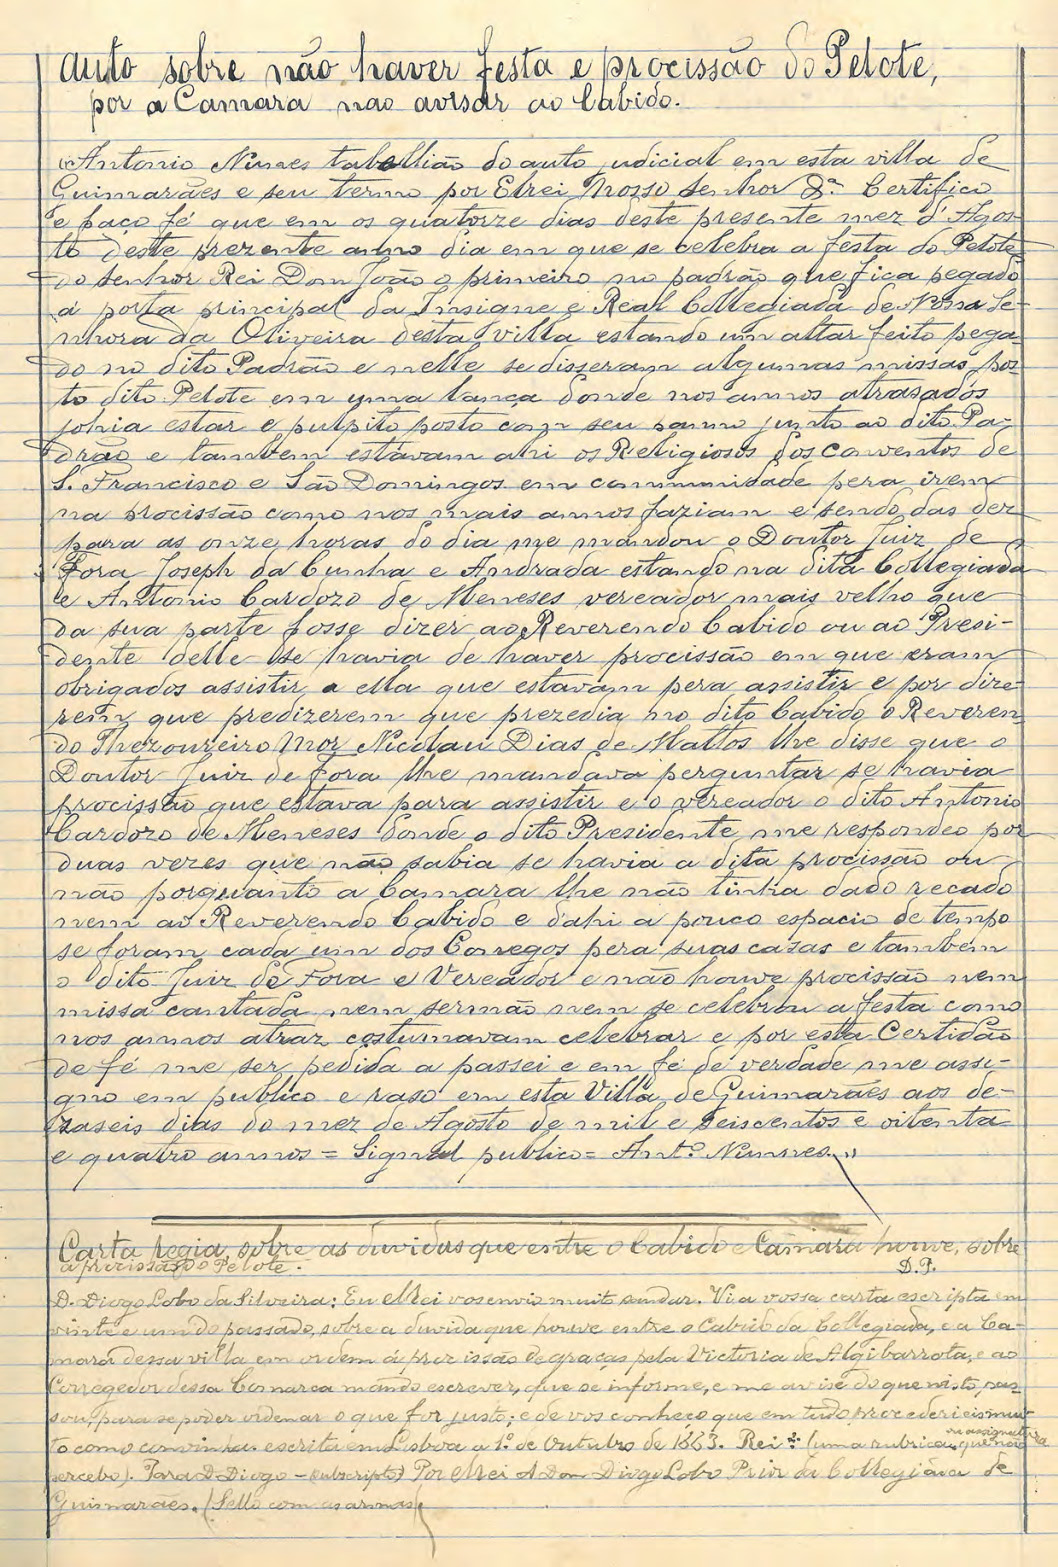 Auto sobre não haver festa e procissão do Pelote,
por a Camara nao avisar ao Cabido.
Antonio Nunes taballião do auto judicial em esta villa de
Guimarães e seu termo por Elrei Nosso Senhor &.ª Certifico
e faço fé que em os quatorze dias deste presente mez d'Agos-
to deste prezente anno dia em que se celebra a festa do Pelote
do senhor Rei Dom João o primeiro no padrão que fica pegado
á porta principal da Insigne e Real Collegiada de Nossa Se-
nhora da Oliveira desta villa estando um altar feito pega-
do no dito Padrão e nelle se disseram algumas missas pos-
to dito Pelote em uma lança donde nos annos atrasados
sohia estar e pulpito posto com seu panno junto ao dito Pa-
drão e tambem estavam ahi os Religiosos dos Conventos de
S. Francisco e São Domingos em communidade pera irem
na procissão como nos mais annos faziam e sendo das dez
para as onze horas do dia me mandou o Doutor Juiz de
Fora Joseph da Cunha e Andrada estando na dita Collegiada
e Antonio Cardozo de Meneses vereador mais velho que
da sua parte fosse dizer ao Reverendo Cabido ou ao Presi-
dente delle se havia de haver procissão em que eram
obrigados assistir a ella que estavam pera assistir e por dize-
rem que predizerem que prezedia no dito Cabido o Reveren-
do Thezoureiro Mor Nicolau Dias de Mattos lhe disse que o
Doutor Juiz de Fora lhe mandava perguntar se havia
procissão que estava para assistir e o vereador o dito Antonio
Cardozo de Meneses donde o dito Presidente me respondeo por
duas vezes que não sabia se havia a dita procissão ou
não porquanto a Camara lhe não tinha dado recado
nem ao Reverendo Cabido e d'ahi a pouco espacio de tempo
se foram cada um dos Conegos pera suas casas e tambem
o dito Juiz de Fora e Vereador e não houve procissão nem
missa cantada nem sermão nem se celebrou a festa como
nos annos atraz costumavam celebrar e por esta Certidão
de fé me ser pedida a passei e em fé de verdade me assi-
gno em publico e raso em esta Villa de Guimarães aos de-
zaseis dias do mez de Agosto de mil e seiscentos e oitenta
e quatro annos = Signal publico = Ant.º Nunnes.,,
Carta regia, sobre as duvidas que entre o Cabido e Camara houve, sobre
a procissão do Pelote.
D. P.
D. Diogo Lobo da Silveira; Eu elRei vos envio muito saudar. Vi a vossa carta escripta em
vinte e um do passado, sobre a duvida que houve entre o Cabido da Collegiada, e a Ca-
mara dessa villa, em ordem á procissão de graças pela Victoria de Algibarrota, e ao
Corregedor dessa Comarca mando escrever, que se informe, e me avise do que nisto, pas-
sou, para se poder ordenar o que for justo; e de vos conheço que em tudo procederieis mui-
to como convinha. escrita em Lisboa a 1.º de Outubro de 1663. Rei .:. (uma rubrica ou assignatura que não
percebo). Para D. Diogo – (subscripto) Por elRei A Dom Diogo Lobo Prior da Collegiada de
Guimarães. (Sello com as armas)